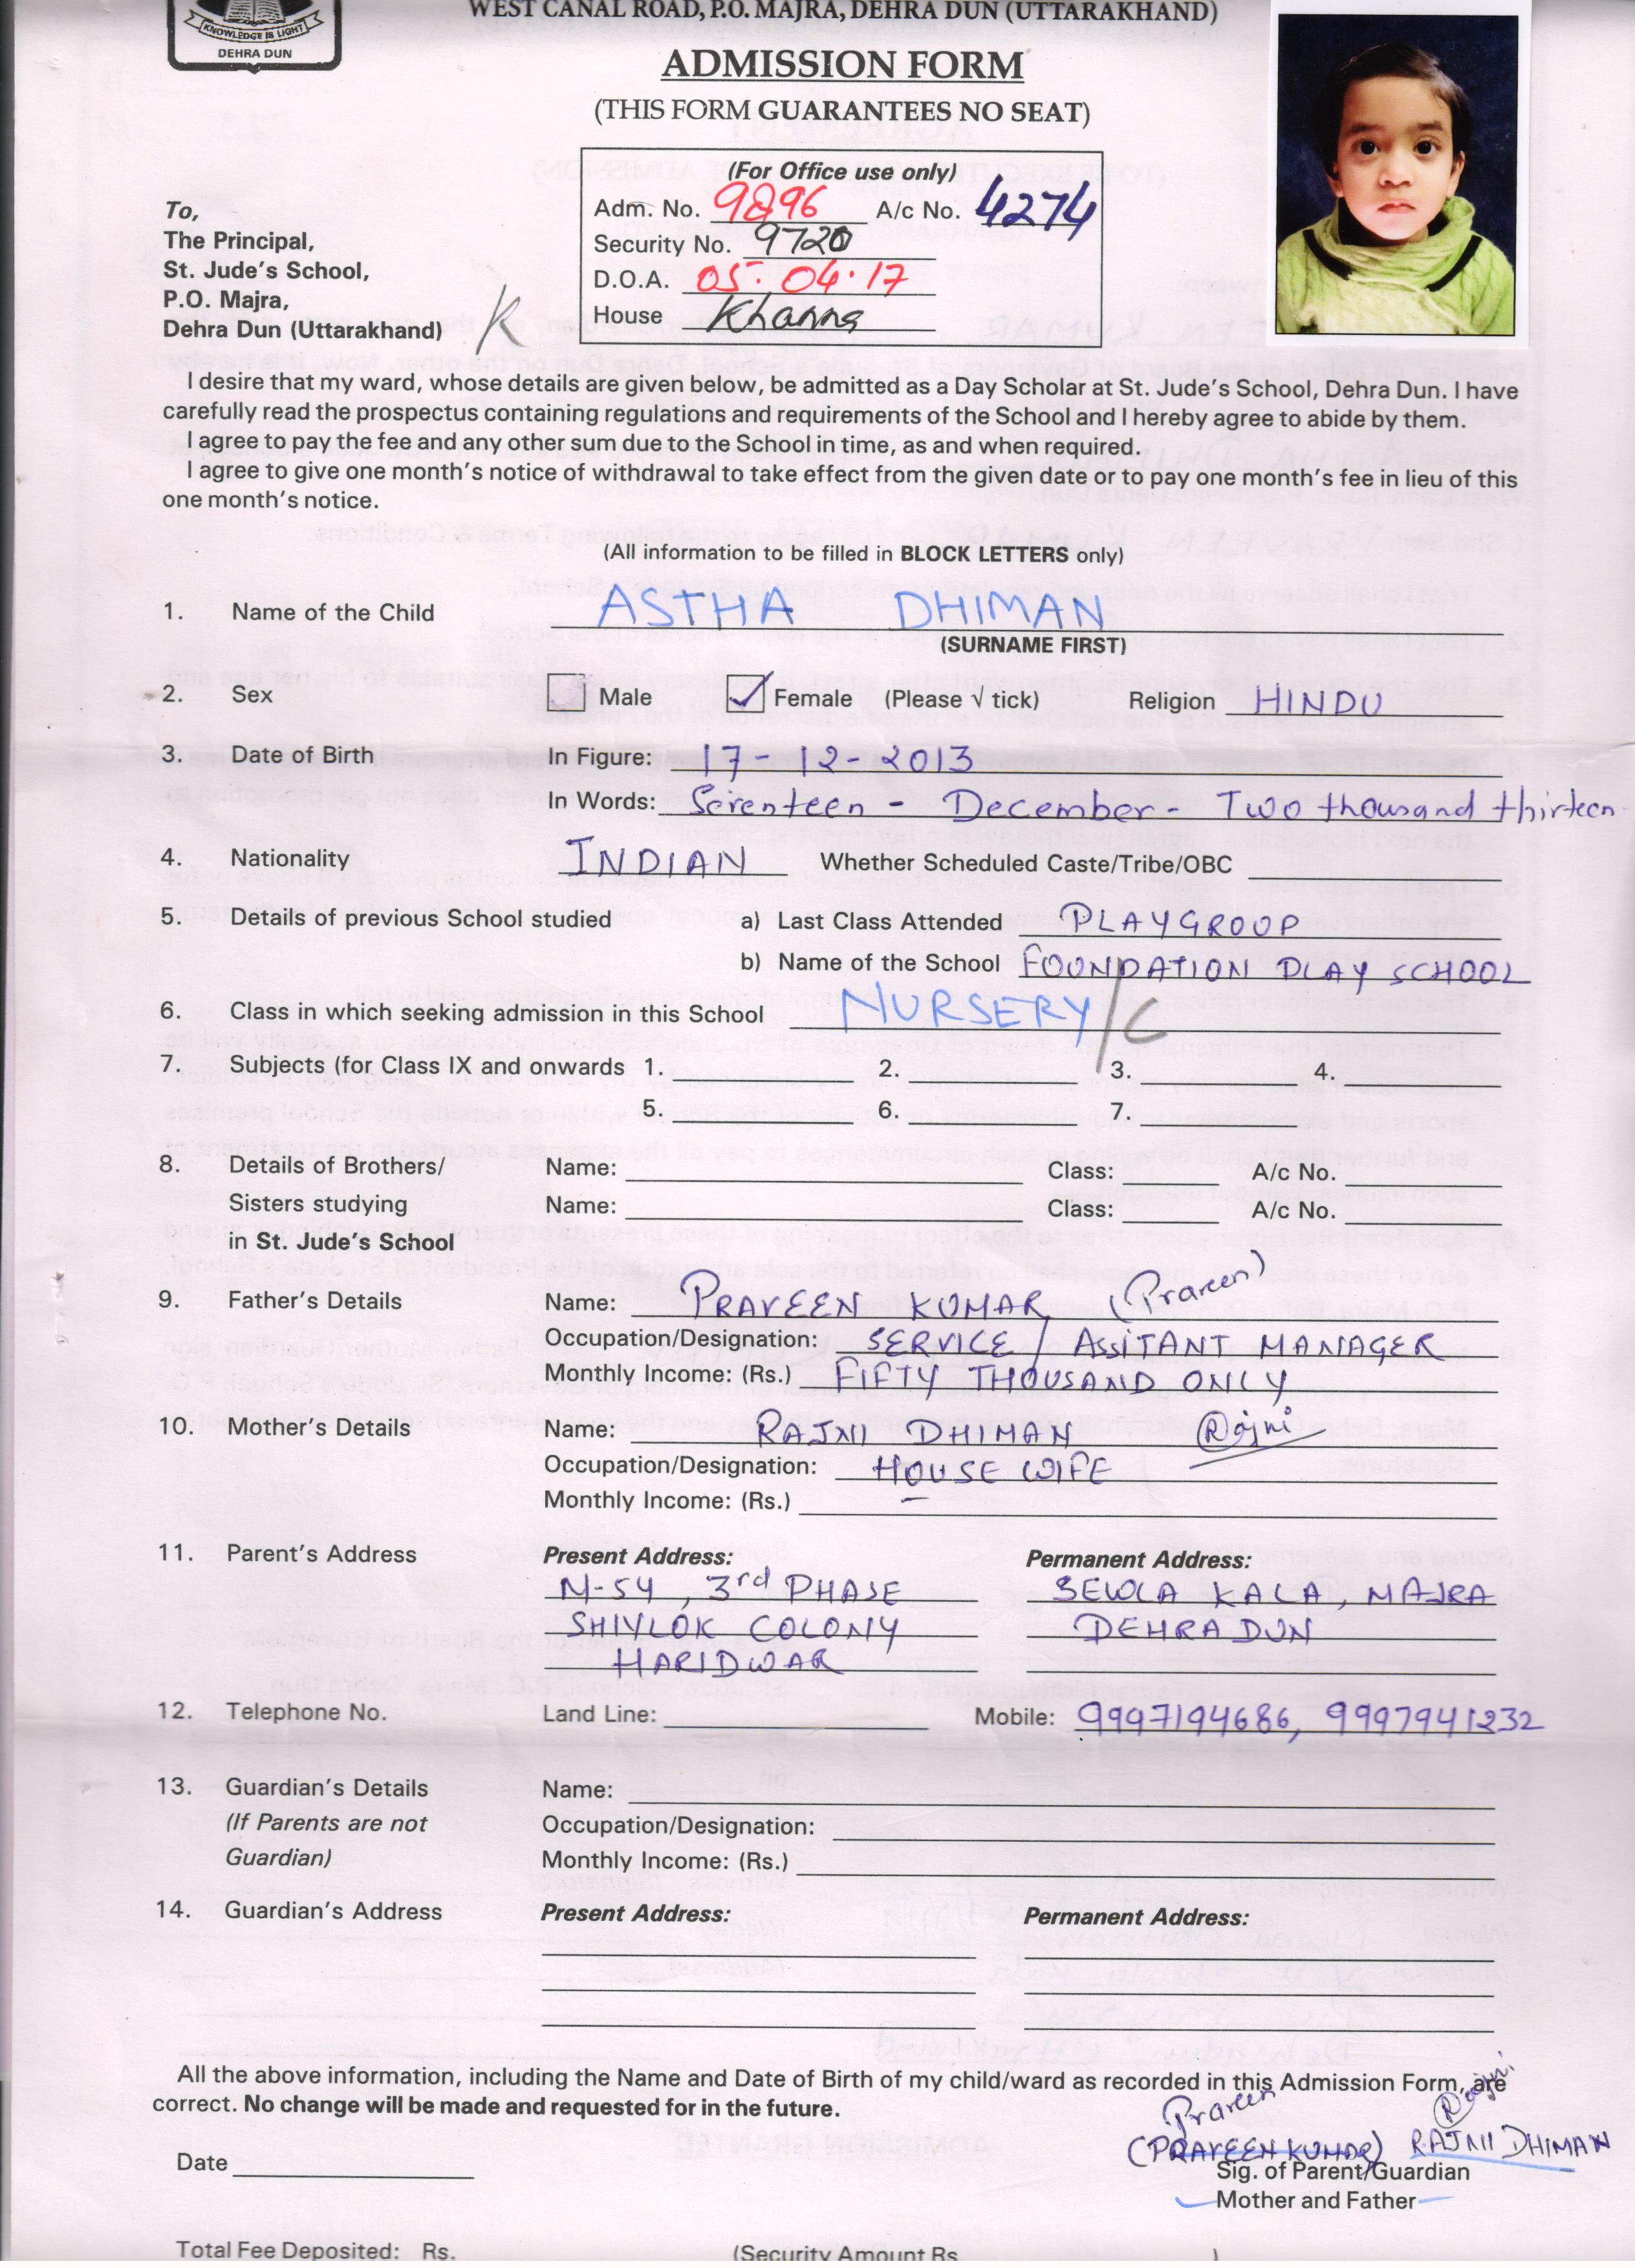 WEST CANAL ROAD, P.O. MAJRA, DEHRA DUN (UTTARAKHAND)
KNOWLEDGE IS LIGHT
DEHRA DUN
ADMISSION FORM
(THIS FORM GUARANTEES NO SEAT)
(For Office use only)
Adm. No. 9896 A/c No. 4274
Security No. 9720
D.O.A. 05.04.17
House Khanna
To,
The Principal,
St. Jude's School,
P.O. Majra,
Dehra Dun (Uttarakhand) K
I desire that my ward, whose details are given below, be admitted as a Day Scholar at St. Jude's School, Dehra Dun. I have
carefully read the prospectus containing regulations and requirements of the School and I hereby agree to abide by them.
I agree to pay the fee and any other sum due to the School in time, as and when required.
I agree to give one month's notice of withdrawal to take effect from the given date or to pay one month's fee in lieu of this
one month's notice.
(All information to be filled in BLOCK LETTERS only)
1. Name of the Child ASTHA DHIMAN
(SURNAME FIRST)
2. Sex Male Female (Please √ tick) Religion HINDU
3. Date of Birth In Figure: 17-12-2013
In Words: Seventeen - December - Two thousand thirteen
4. Nationality INDIAN Whether Scheduled Caste/Tribe/OBC
5. Details of previous School studied a) Last Class Attended PLAYGROUP
b) Name of the School FOUNDATION PLAY SCHOOL
6. Class in which seeking admission in this School NURSERY/C
7. Subjects (for Class IX and onwards 1. 2. 3. 4.
5. 6. 7.
8. Details of Brothers/ Name: Class: A/c No.
Sisters studying Name: Class: A/c No.
in St. Jude's School
9. Father's Details Name: PRAVEEN KUMAR (Praveen)
Occupation/Designation: SERVICE / ASSITANT MANAGER
Monthly Income: (Rs.) FIFTY THOUSAND ONLY
10. Mother's Details Name: RAJNI DHIMAN Rajni
Occupation/Designation: HOUSE WIFE
Monthly Income: (Rs.) –
11. Parent's Address Present Address: Permanent Address:
N-54, 3rd PHASE SEWLA KALA, MAJRA
SHIVLOK COLONY DEHRADUN
HARIDWAR
12. Telephone No. Land Line: Mobile: 9997194686, 9997941232
13. Guardian's Details Name:
(If Parents are not Occupation/Designation:
Guardian) Monthly Income: (Rs.)
14. Guardian's Address Present Address: Permanent Address:
All the above information, including the Name and Date of Birth of my child/ward as recorded in this Admission Form, are
correct. No change will be made and requested for in the future.
Praveen Rajni
(PRAVEEN KUMAR) RAJNI DHIMAN
Date Sig. of Parent/Guardian
Mother and Father
Total Fee Deposited: Rs. (Security Amount Rs. )